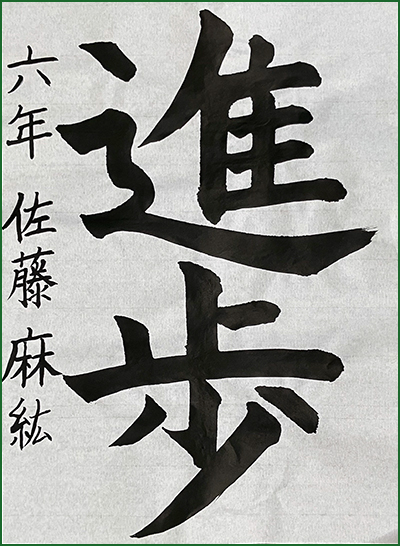 進歩
六年 佐藤麻紘